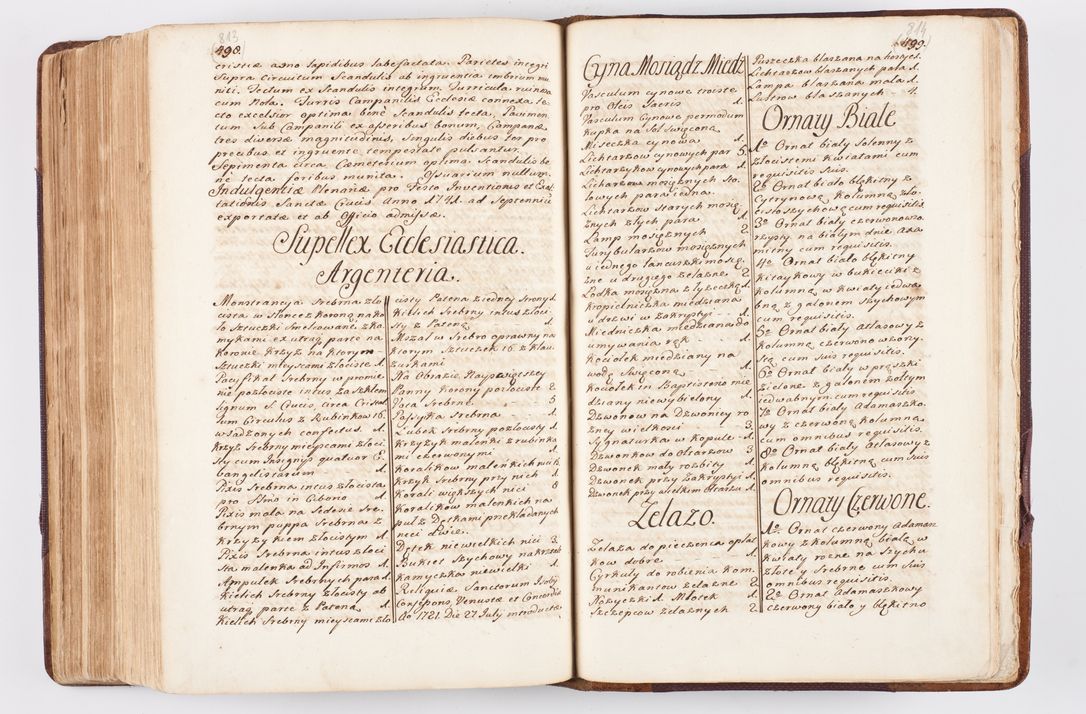 813
498.
cristiæ asno sapidibus labefactata. Parietes integri
Supra circuitum Scandulis ab ingruentia imbrium mu
niti. Tectum ex Scandulis integrum. Turricula ruinosa
cum Nola. Turris Campanilis Ecclesiæ connexa te
cto excelsior optima benè Scandulis tecta, Pavimen
tum Sub Campanili ex asseribus bonum, Campanæ
tres diversæ magnitudinis, singulis diebus ter pro
precibus et ingruente tempestate pulsantur.
Sepimenta circa Cœmeterium optima Scandulis be
ne tecta foribus munita. Ossuarium nullum.
Indulgentiæ Plenariæ pro Festo Inventionis et Exal
tationis Sanctæ Crucis Anno 1741. ad Septenniū
exportatæ et ab Officio admissæ.
Supellex Ecclesiastica.
Argenteria.
Monstrancya Srebrna zło
cista w słońce z Koroną na ko
ło sztuczki Smelcowane z ka
mykami ex utraq parte na
Koronie Krzyż na ktorym
Sztuczki mieyscami złociste 1.
Pacyfikał Srebrny w promie
nie pozłociste intus za szkłem
signum S. Crucis circa Cristal
lum Circulus z Rubinkow 16.
wsadzonych confectus. 1.
Krzyż Srebrny mieyscami złoci
sty cum Insignys quatuor E.
vangelistarum 1.
Pixis Srebrna intus złocista
pro SSmo in Ciborio 1.
Pixis mała na Sedesie Sre
brnym puppa Srebrna z
Krzyżykiem złocistym 1.
Pixis Srebrna intus złoci
sta malenka ad Infirmos 1.
Ampułek Srebrnych para 1.
Kielich Srebrny złocisty ab
utraq parte z Pateną 1.
Kielich Srebrny mieyscami zło
cisty Patena z iedney strony 1.
Kielich Srebrny intus złoci
sty z Pateną 1.
Mszał w Srebro oprawny na
ktorym Sztuczek 16. z Klau
zurkami
Na Obrazie Nayswiętszey
Panny Korony pozłociste 2
Vota Srebrne 5
Passyyka Srebrna 1.
Łubek Srebrny pozłocisty 1.
Krzyżyk malenki z rubinka
mi czerwonymi 1.
Koralikow malenkich nici
Krzyk Srebrny przy nich 1.
Korali większych nici 8
Koralikow malenkich na
puł z Dętkami przekładanych
neci Dwie.
Dętek niewielkich nici 3.
Bukiet Szychowy na krzesle
Kamyczka niewielki 1.
Reliquiæ Sanctorum
Confessoris Venustæ et Concordiæ
Ao 1721. Die 27. July introductæ
814
499.
Cyna Mosiądz Miedz
Vasculum cynowe troiste
pro Oleis Sacris 1.
Vasculum Cynowe per modum
Kupka na Sol święconą 1.
Miseczka cynowa 1.
Lichtarzow cynowych par 5.
Lichtarzow cynowych para 1.
Lichtarzow mosiężnych sto
łowych para iedna.
Lichtarzow Starych mosię
żnych złych para 1.
Lamp mosiężnych 2
Turybularzow mosiężnych
u iednego łancuszki mosię
żne u drugiego żelazne 2
Łodka mosiężna z łyżeczką 1.
Kropielniczka miedziana
u drzwi w Zakrystyi 1.
Miedniczka miedziana do
umywania rąk 1.
Kociołek miedziany na
wodę Swięconą 1.
Kociołek in Baptisterio mie
dziany niewybielony 1.
Dzwonow na Dzwonicy ro
żney wielkosci 3.
Sygnaturka w Kopule 1.
Dzwonkow do Ołtarzow 3
Dzwonek mały rozbity 1.
Dzwonek przy Zakrystyi 1.
Dzwonek przy wielkim Ołtarzu 1.
Zelazo.
Zelaza do pieczenia opłat
kow dobre 1.
Cyrkuły do robienia Kom
munikantow żelazne 2
Nożyczki 1. Młotek 1.
Szczepcow żelaznych 2
Puszeczka blaszana na hostych 1.
Lichtarzow blaszanych para 1.
Lampa blaszana mała 1.
Lustrow blaszanych 4.
Ornaty Białe
1º Ornat biały Solenny z
złocistemi kwiatami cum
requisitis suis.
2º Ornat biało błękitny z
Cytrynową Kolumną zło
cisto szychową cum requisitis
3º Ornat biały czerwonowzo
rzysty na białym dnie Axa
mitny cum requisitis.
4º Ornat biało błękitny
kitaykowy w bukieciki z
Kolumną w Kwiaty iedwa
bną z galonem Szychowym
cum requisitis.
5º Ornat biały Atłasowy z
Kolumną czerwono wzorzy
stą cum suis requisitis.
6º Ornat biały w prążki
zielone z galonem żołtym
iedwabnym cum requisitis
7º Ornat biały Adamaszko
wy z czerwoną Kolumną
cum omnibus requisitis.
8º Ornat biały Atłasowy z
Kolumną błękitną cum suis
omnibus requisitis.
Ornaty Czerwone.
1º Ornat czerwony Adamasz
kowy z Kolumną białą w
Kwiaty rożne na Szychu
złote y Srebrne cum suis
omnibus requisitis.
2º Ornat Adamaszkowy
czerwony biało y błękitno